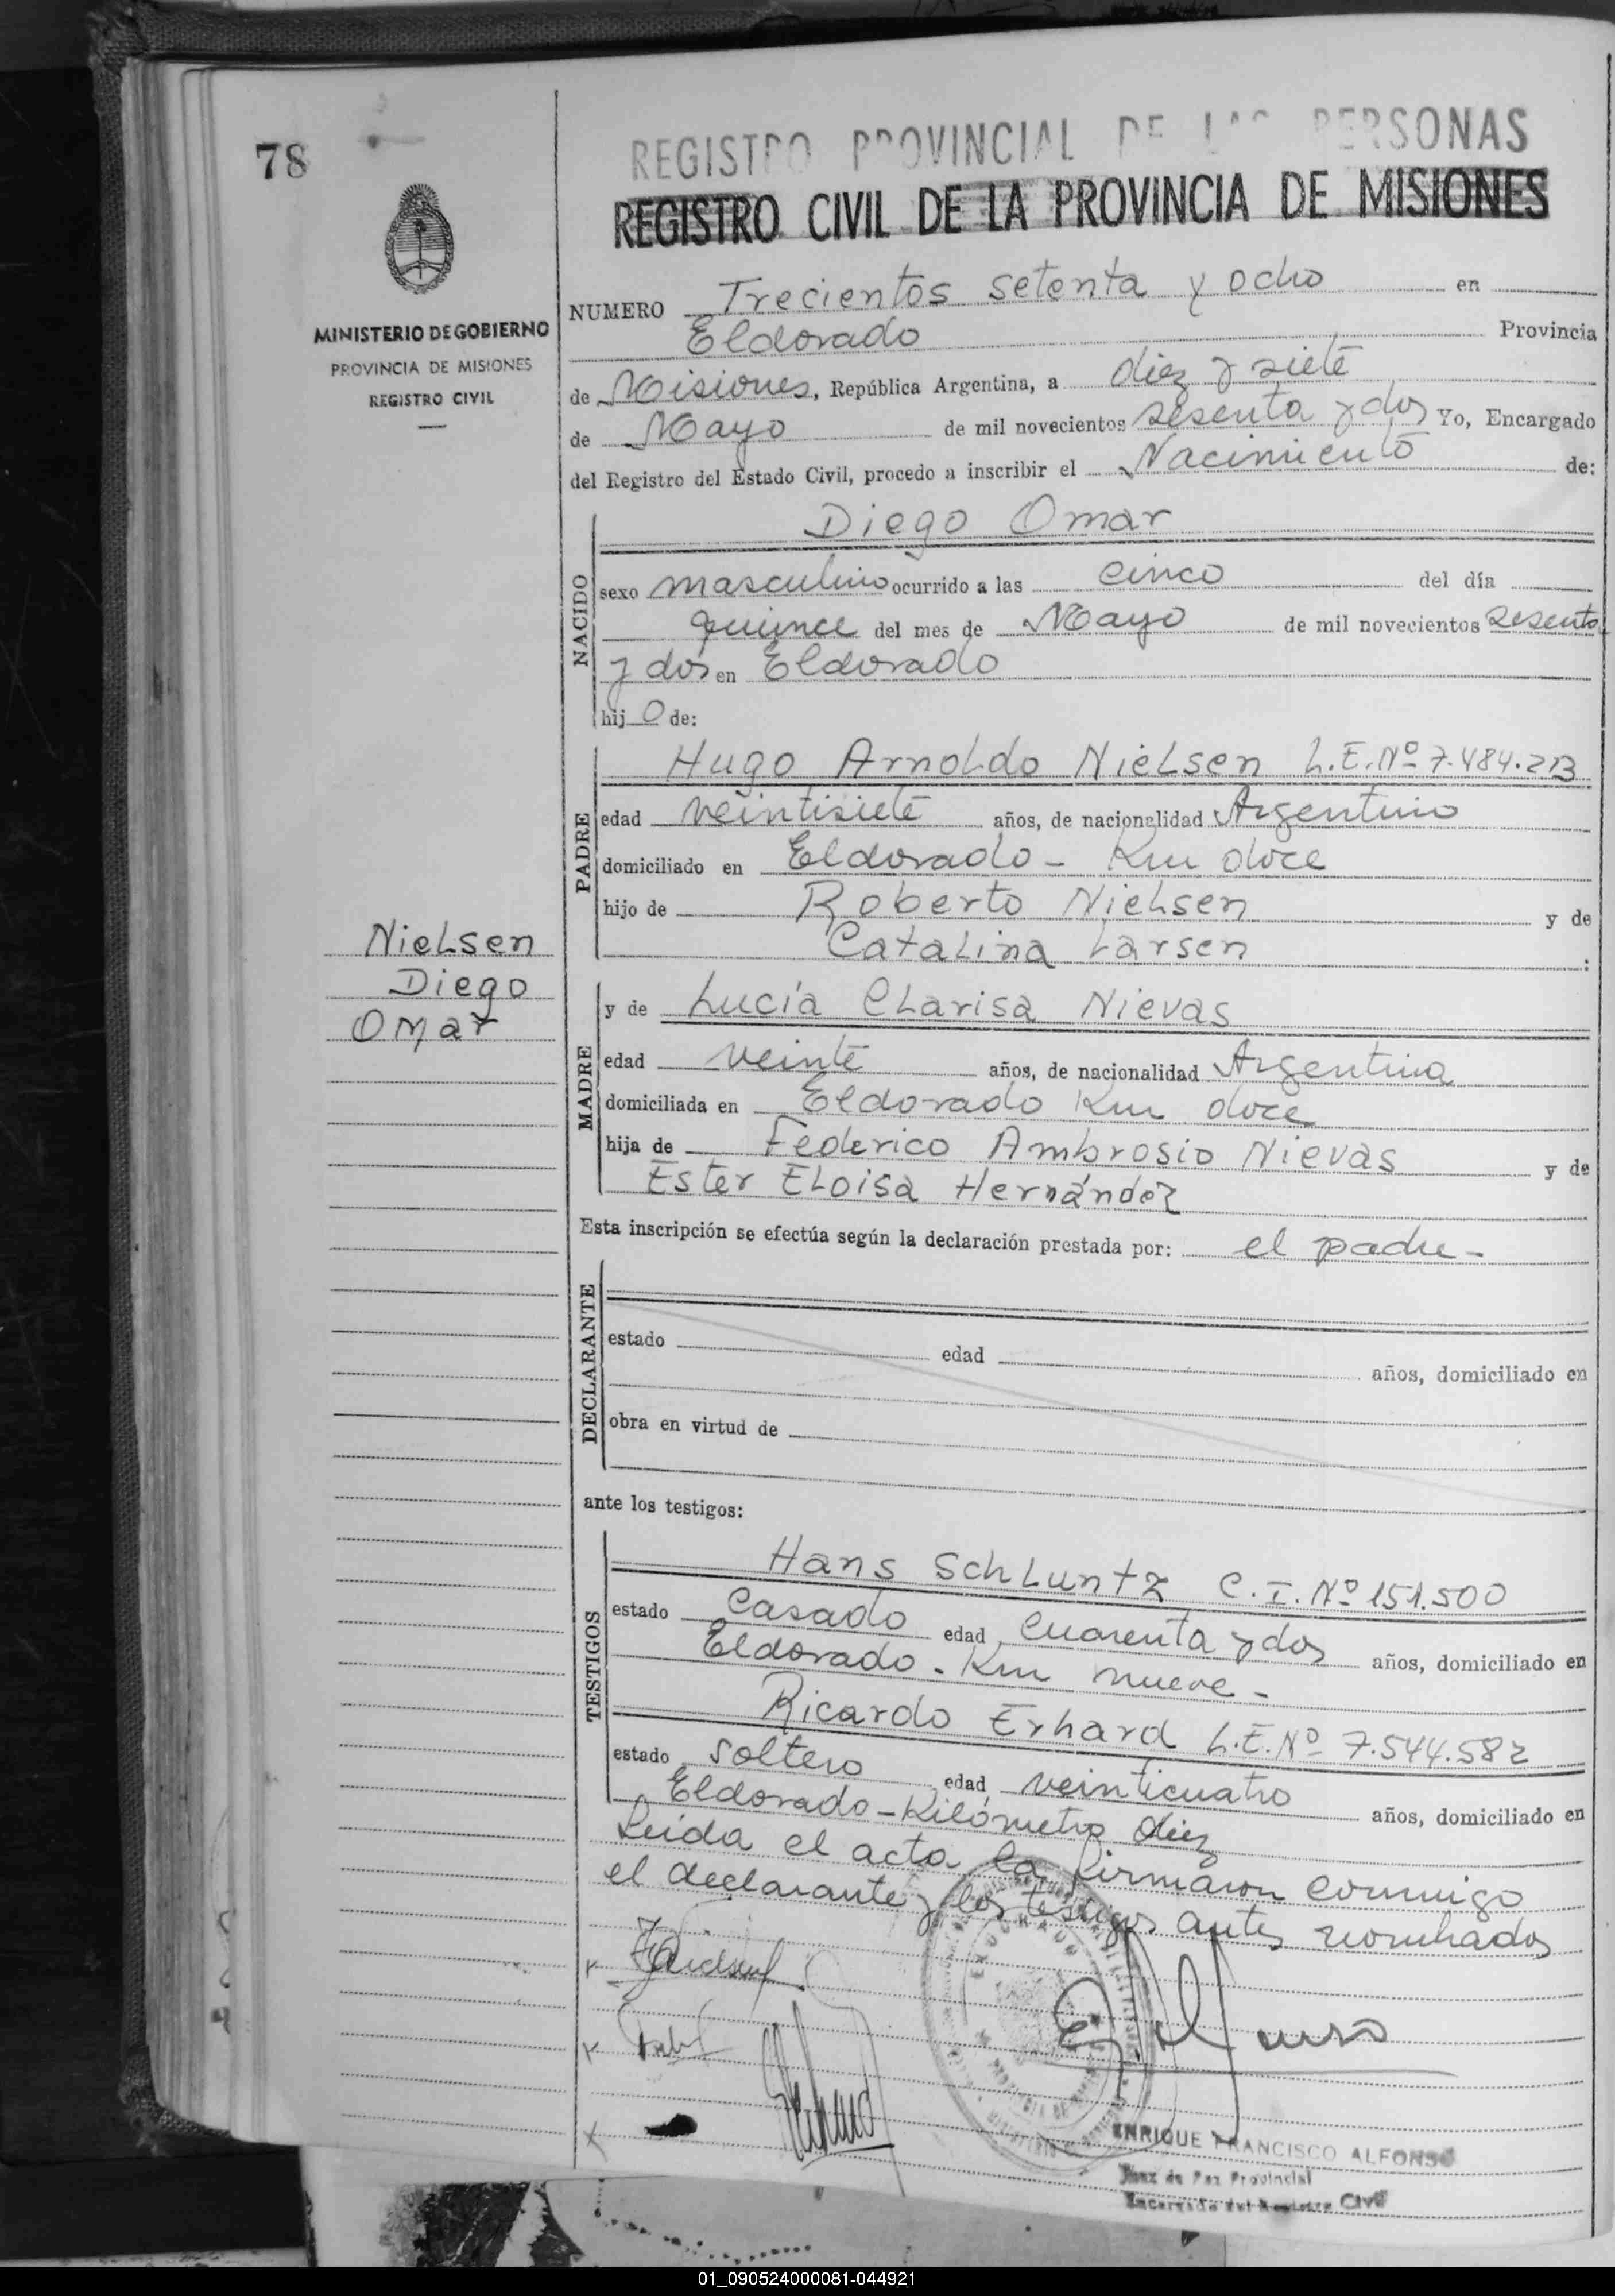 78
MINISTERIO DE GOBIERNO
PROVINCIA DE MISIONES
REGISTRO CIVIL
Nielsen
Diego
Omar
REGISTRO PROVINCIAL DE LAS PERSONAS
REGISTRO CIVIL DE LA PROVINCIA DE MISIONES
NUMERO Trecientos setenta y ocho en
Eldorado Provincia
de Misiones, República Argentina, a diez y siete
de Mayo de mil novecientos sesenta y dos Yo, Encargado
del Registro del Estado Civil, procedo a inscribir el Nacimiento de:
NACIDO
Diego Omar
sexo masculino ocurrido a las cinco del día
quince del mes de Mayo de mil novecientos sesenta
y dos en Eldorado
hij o de:
PADRE
Hugo Arnoldo Nielsen L.E. Nº 7.484.213
edad veintisiete años, de nacionalidad Argentino
domiciliado en Eldorado - Km doce
hijo de Roberto Nielsen y de
Catalina Larsen :
MADRE
y de Lucía Clarisa Nievas
edad veinte años, de nacionalidad Argentina
domiciliada en Eldorado Km doce
hija de Federico Ambrosio Nievas y de
Ester Eloisa Hernández
Esta inscripción se efectúa según la declaración prestada por: el padre -
DECLARANTE
estado edad años, domiciliado en
obra en virtud de
ante los testigos:
TESTIGOS
Hans Schluntz C.I. Nº 151.500
estado Casado edad cuarenta y dos años, domiciliado en
Eldorado - Km nueve -
Ricardo Erhard L.E. Nº 7.544.582
estado soltero edad veinticuatro años, domiciliado en
Eldorado - Kilómetro diez
Leída el acta la firmaron conmigo
el declarante y los testigos antes nombrados
ENRIQUE FRANCISCO ALFONSO
Juez de Paz Provincial
Encargado del Registro Civil
01_090524000081-044921